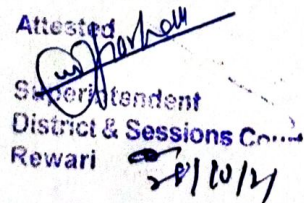 Attested
Superintendent
District & Sessions Cou
Rewari
28/10/21